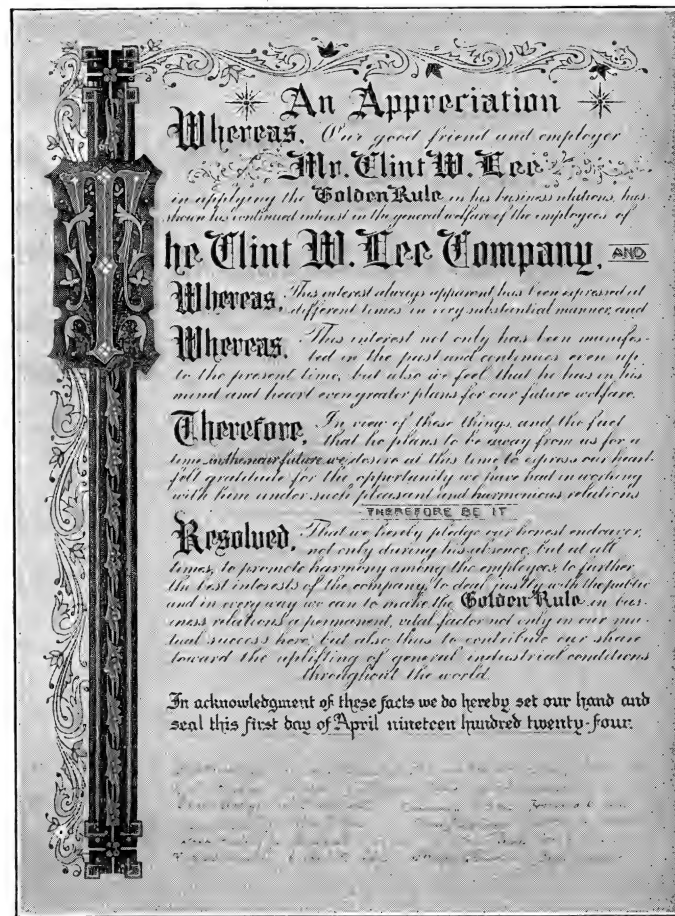 An Appreciation
Whereas, Our good friend and employer
Mr. Clint W. Lee
in applying the Golden Rule in his business relations, has
shown his continued interest in the general welfare of the employees of
The Clint W. Lee Company, AND
Whereas, This interest always apparent, has been expressed at
different times in very substantial manner, and
Whereas, This interest not only has been manifes-
ted in the past and continues even up
to the present time, but also we feel that he has in his
mind and heart even greater plans for our future welfare.
Therefore, In view of these things, and the fact
that he plans to be away from us for a
time in the near future we desire at this time to express our heart-
felt gratitude for the opportunity we have had in working
with him under such pleasant and harmonious relations
THEREFORE BE IT
Resolved, That we hereby pledge our honest endeavor,
not only during his absence, but at all
times, to promote harmony among the employees, to further
the best interests of the company, to deal justly with the public
and in every way we can to make the Golden Rule in bus-
iness relations a permanent, vital factor not only in our mu-
tual success here, but also thus to contribute our share
toward the uplifting of general industrial conditions
throughout the world.
In acknowledgment of these facts we do hereby set our hand and
seal this first day of April nineteen hundred twenty-four.